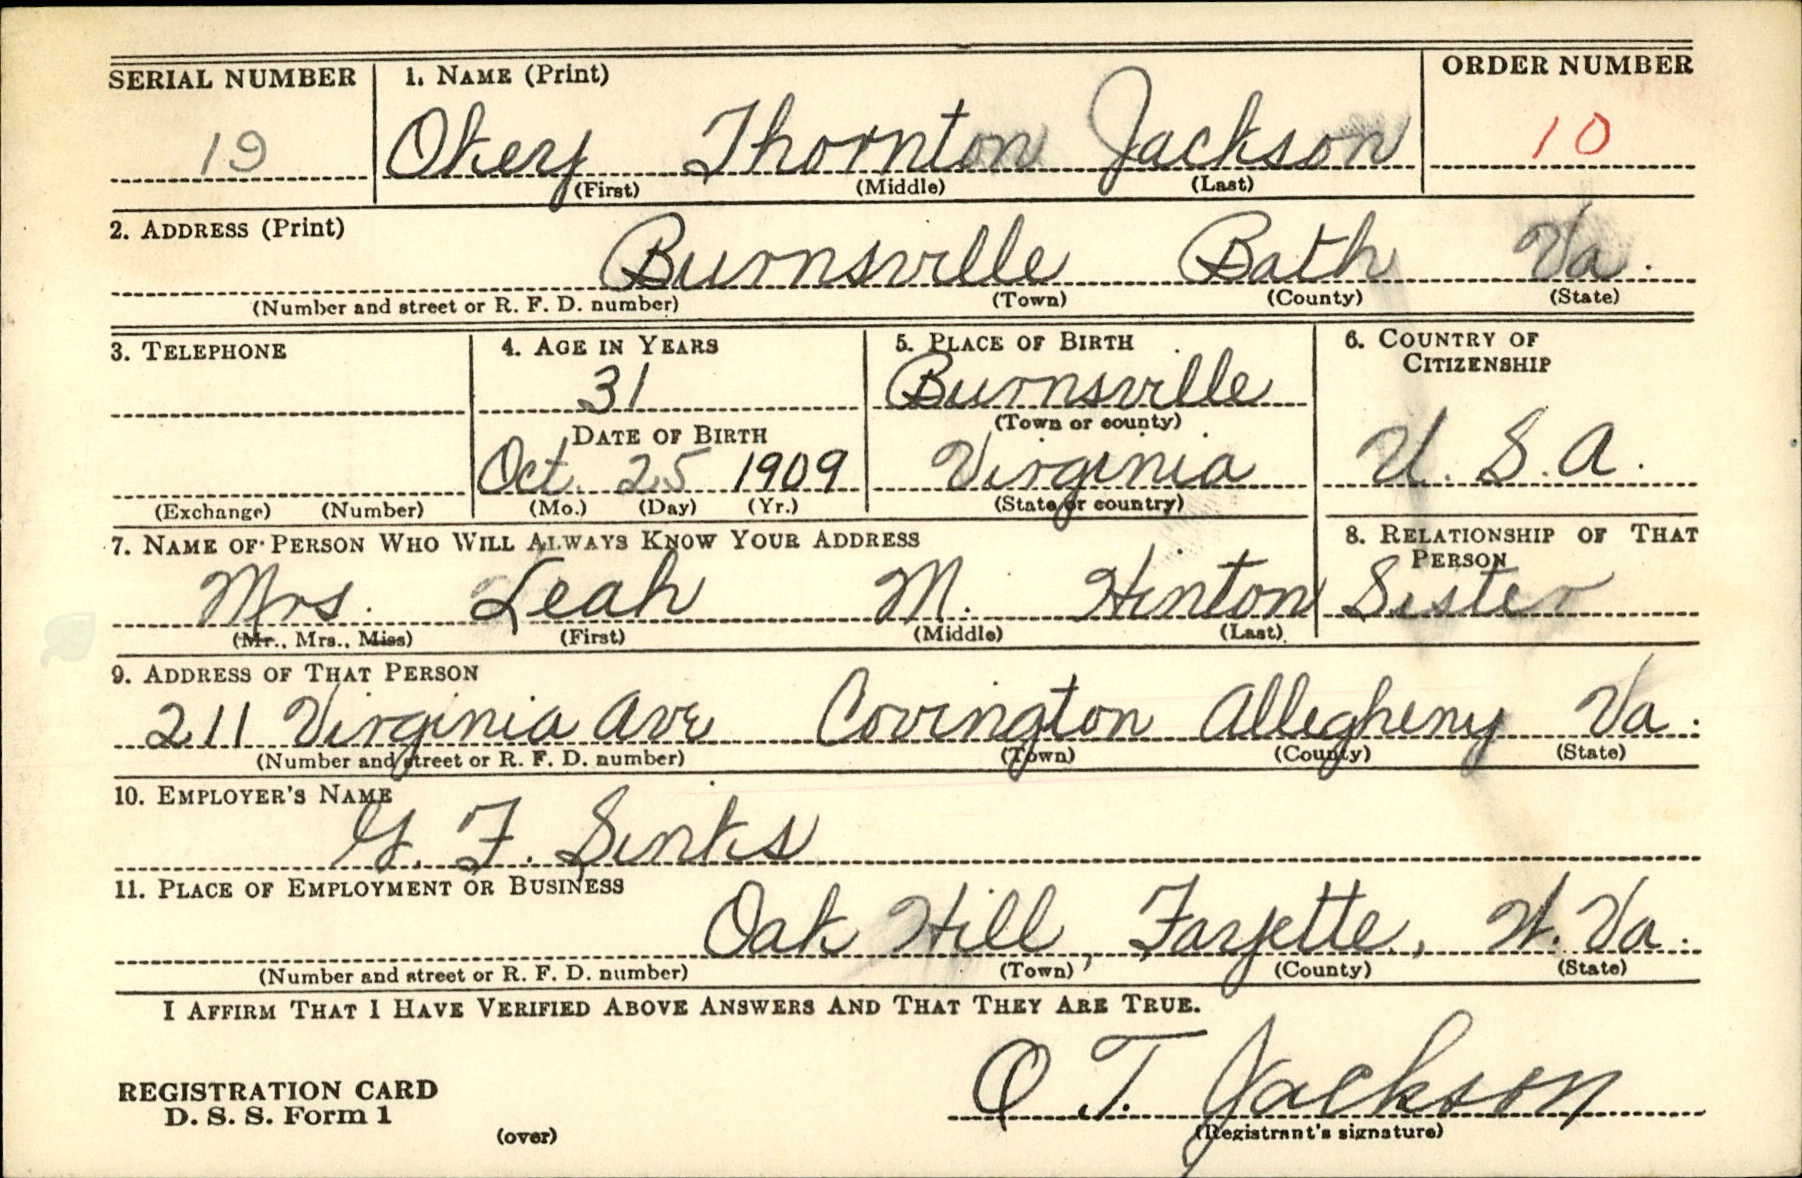 SERIAL NUMBER 1. NAME (Print) ORDER NUMBER
19 Okey Thornton Jackson 10
(First) (Middle) (Last)
2. ADDRESS (Print)
Burnsville Bath Va.
(Number and street or R. F. D. number) (Town) (County) (State)
3. TELEPHONE 4. AGE IN YEARS 5. PLACE OF BIRTH 6. COUNTRY OF CITIZENSHIP
31 Burnsville
DATE OF BIRTH (Town or county)
Oct. 25 1909 Virginia U. S. A.
(Exchange) (Number) (Mo.) (Day) (Yr.) (State or country)
7. NAME OF PERSON WHO WILL ALWAYS KNOW YOUR ADDRESS 8. RELATIONSHIP OF THAT PERSON
Mrs. Leah M. Hinton Sister
(Mr., Mrs., Miss) (First) (Middle) (Last)
9. ADDRESS OF THAT PERSON
211 Virginia Ave Covington Allegheny Va.
(Number and street or R. F. D. number) (Town) (County) (State)
10. EMPLOYER'S NAME
G. F. Sinks
11. PLACE OF EMPLOYMENT OR BUSINESS
Oak Hill, Fayette, W. Va.
(Number and street or R. F. D. number) (Town) (County) (State)
I AFFIRM THAT I HAVE VERIFIED ABOVE ANSWERS AND THAT THEY ARE TRUE.
REGISTRATION CARD
D. S. S. Form 1
O T. Jackson
(over) (Registrant's signature)